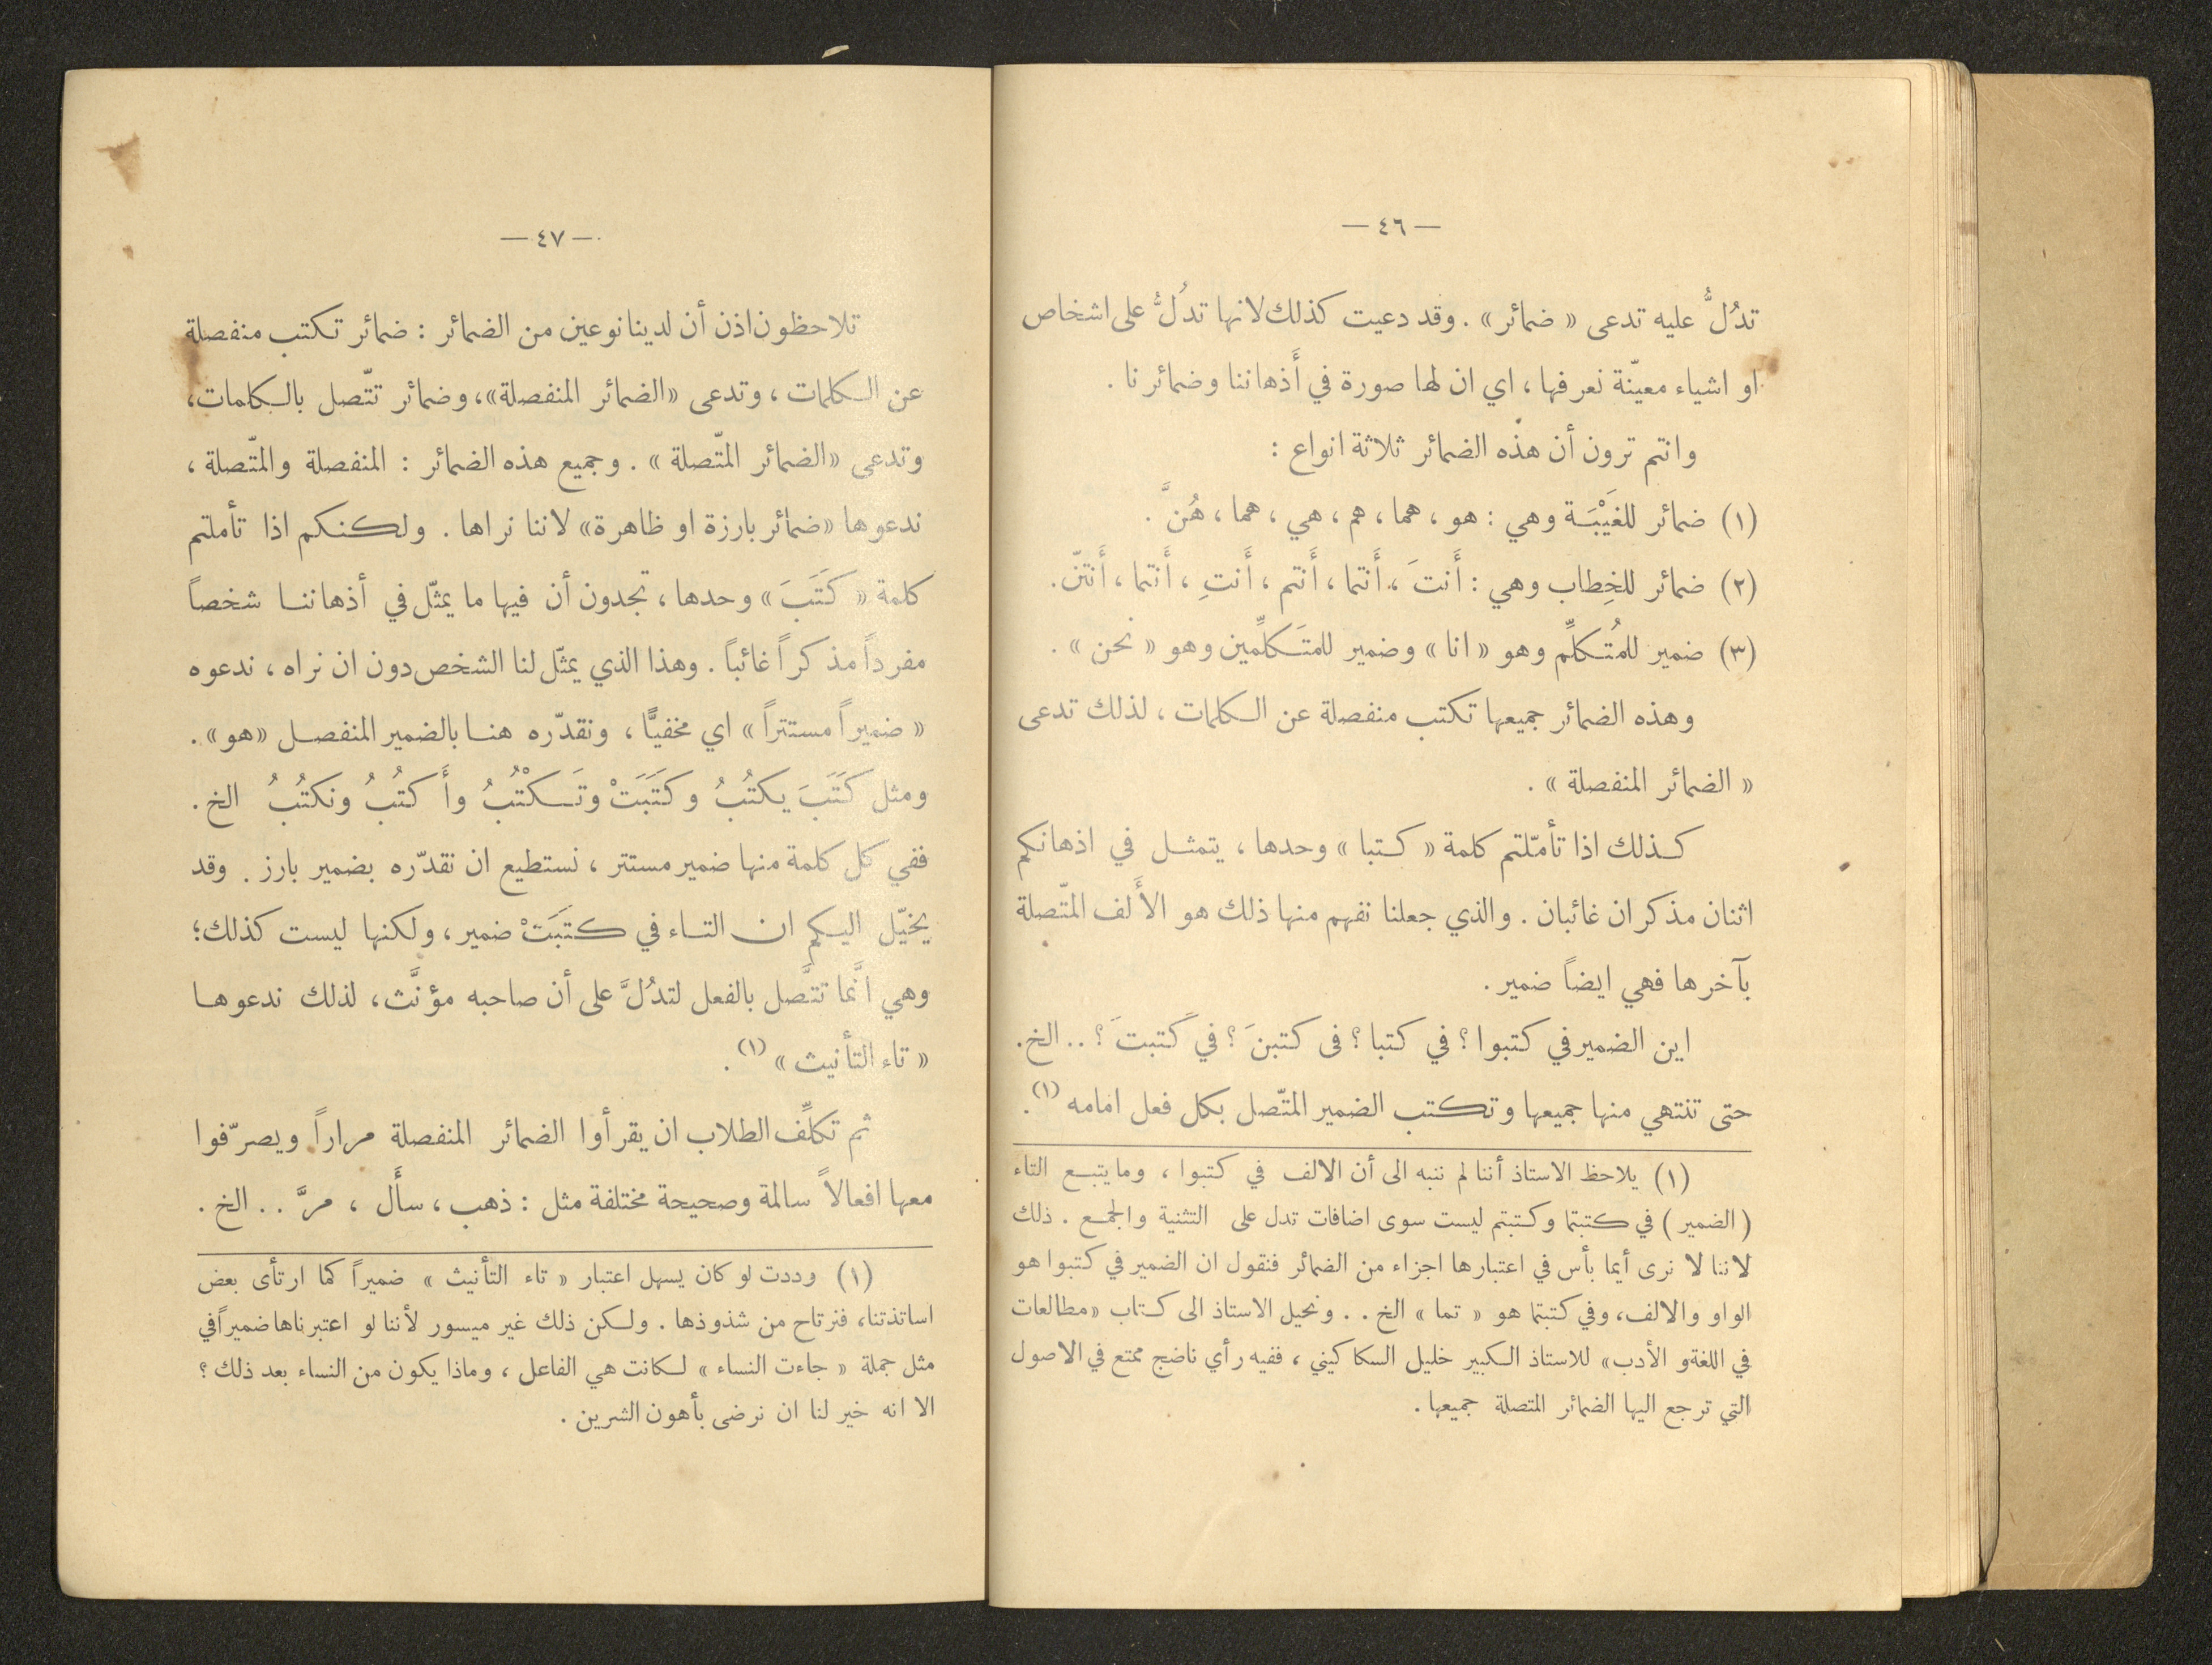 — ٤٦ —
تدُلُّ عليه تدعى « ضمائر » . وقد دعيت كذلك لانها تدُلُّ على اشخاص
او اشياء معيّنة نعرفها ، اي ان لها صورة في أَذهاننا وضمائرنا .
وانتم ترون أن هذه الضمائر ثلاثة انواع :
(١) ضمائر للغَيْبَة وهي : هو ، هما ، هم ، هي ، هما ، هُنَّ .
(٢) ضمائر للخِطاب وهي : أَنتَ ، أَنتما ، أَنتم ، أَنتِ ، أَنتما ، أَنتنّ .
(٣) ضمير للمُتكلِّم وهو « انا » وضمير للمتَكلِّمين وهو « نحن » .
وهذه الضمائر جميعها تكتب منفصلة عن الكلمات ، لذلك تدعى
« الضمائر المنفصلة » .
كذلك اذا تأمّلتم كلمة « كتبا » وحدها ، يتمثل في اذهانكم
اثنان مذكران غائبان . والذي جعلنا نفهم منها ذلك هو الأَلف المتّصلة
بآخرها فهي ايضاً ضمير .
اين الضمير في كتبوا ؟ في كتبا ؟ فى كتبنَ ؟ في كتبتَ ؟ .. الخ.
حتى تنتهي منها جميعها وتكتب الضمير المتّصل بكل فعل امامه (١).
(١) يلاحظ الاستاذ أننا لم ننبه الى أن الالف في كتبوا ، وما يتبع التاء
( الضمير ) في كتبتما وكتبتم ليست سوى اضافات تدل على التثنية والجمع . ذلك
لاننا لا نرى أيما بأس في اعتبارها اجزاء من الضمائر فنقول ان الضمير في كتبوا هو
الواو والالف، وفي كتبتما هو « تما » الخ . . ونحيل الاستاذ الى كتاب «مطالعات
في اللغة و الأدب» للاستاذ الكبير خليل السكاكيني ، ففيه رأي ناضج ممتع في الاصول
التي ترجع اليها الضمائر المتصلة جميعها .
— ٤٧ —
تلاحظون اذن أن لدينا نوعين من الضمائر : ضمائر تكتب منفصلة
عن الكلمات ، وتدعى «الضمائر المنفصلة»، وضمائر تتّصل بالكلمات،
وتدعى «الضمائر المتّصلة » . وجميع هذه الضمائر : المنفصلة والمتّصلة ،
ندعوها «ضمائر بارزة او ظاهرة» لاننا نراها . ولكنكم اذا تأملتم
كلمة « كَتَبَ » وحدها ، تجدون أن فيها ما يمثّل في أذهاننا شخصاً
مفرداً مذكراً غائباً . وهذا الذي يمثّل لنا الشخص دون ان نراه ، ندعوه
« ضميراً مستتراً » اي مخفيًّا ، ونقدّره هنا بالضمير المنفصل «هو» .
ومثل كَتَبَ يكتُبُ وكتَبَتْ وتَكْتُبُ وأَكتُبُ ونكتُبُ الخ .
ففي كل كلمة منها ضمير مستتر ، نستطيع ان نقدّره بضمير بارز . وقد
يخيّل اليكم ان التاء في كتبَتْ ضمير ، ولكنها ليست كذلك ؛
وهي انَّما تتَّصل بالفعل لتدُلَّ على أن صاحبه مؤنَّث ، لذلك ندعوها
« تاء التأنيث » (١).
ثم تكلِّف الطلاب ان يقرأوا الضمائر المنفصلة مراراً ويصرّفوا
معها افعالاً سالمة وصحيحة مختلفة مثل : ذهب ، سأَل ، مرَّ . . الخ .
(١) وددت لو كان يسهل اعتبار « تاء التأنيث » ضميراً كما ارتأى بعض
اساتذتنا، فنرتاح من شذوذها . ولكن ذلك غير ميسور لأننا لو اعتبرناها ضميراً في
مثل جملة « جاءت النساء » لكانت هي الفاعل ، وماذا يكون من النساء بعد ذلك ؟
الا انه خير لنا ان نرضى بأهون الشرين .